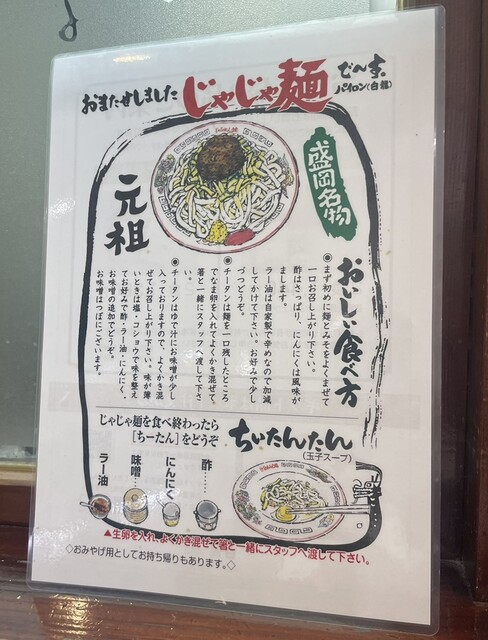 おまたせしました
じゃじゃ麺
で〜す。
パイロン(白龍)
盛岡名物
元祖
おいしい食べ方
●まず初めに麺とみそをよくまぜて
一口お召し上がり下さい。
酢はさっぱり、にんにくは風味が
まします。
ラー油は自家製で辛めなので加減
してかけて下さい。お好みで少し
づつどうぞ。
●チータンは麺を一口残したところ
でなま卵を入れてよくかき混ぜて、
箸と一緒にスタッフへ渡して下さ
い。
●チータンはゆで汁にお味噌が少し
入っておりますので、よくかき混
ぜてお召し上がり下さい。味が薄
いときは塩・コショウで味を整え
てお好みで酢・ラー油・にんにく、
お味噌の追加でどうぞ。
お味噌はつぼにございます。
じゃじゃ麺を食べ終わったら
[ちーたん]をどうぞ
ちぃたんたん
(玉子スープ)
酢
にんにく
味噌
ラー油
▲生卵を入れ、よくかき混ぜて箸と一緒にスタッフへ渡して下さい。
◇おみやげ用としてお持ち帰りもあります。◇